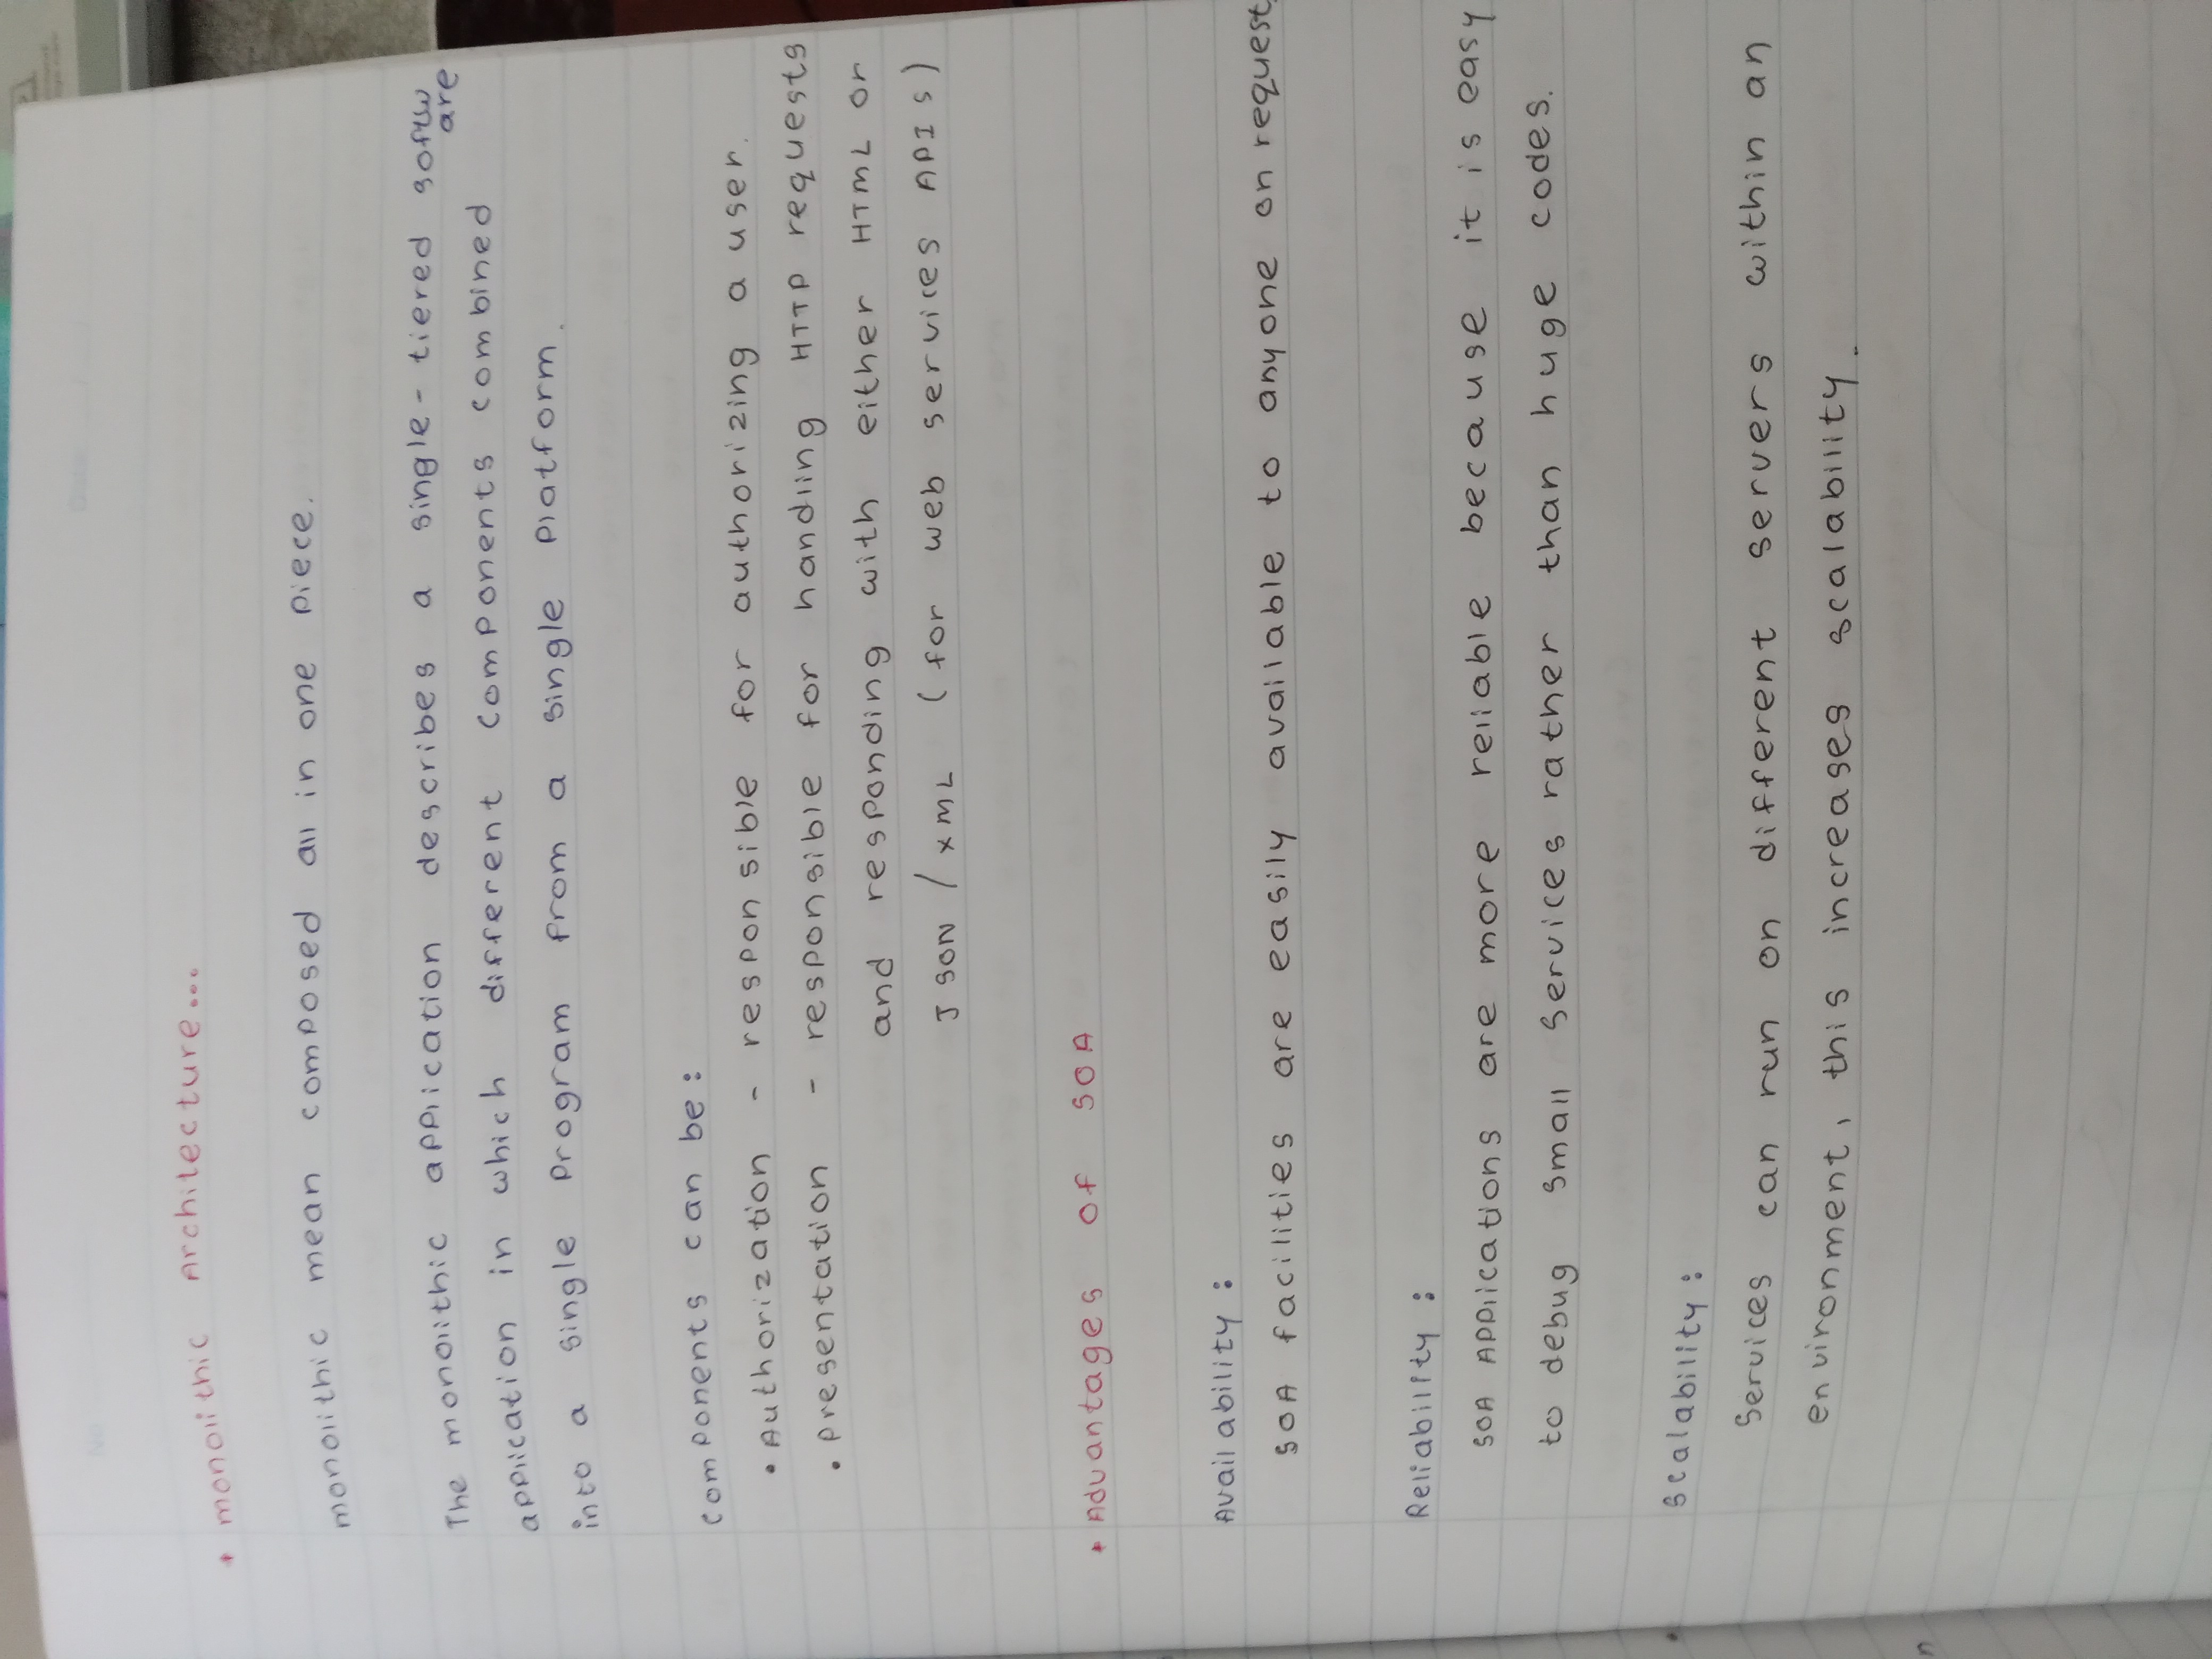 No
Date
* monolithic Architecture...
monolithic mean composed all in one piece.
The monolithic application describes a single-tiered softw
are
application in which different components combined
into a single program from a single platform.
components can be:
• Authorization - responsible for authorizing a user.
• presentation - responsible for handling HTTP requests
and responding with either HTML or
JSON / XML (for web services APIs)
* Advantages of SOA
Availability :
SOA facilities are easily available to anyone on request.
Reliability :
SOA Applications are more reliable because it is easy
to debug small services rather than huge codes.
Scalability :
Services can run on different servers within an
environment, this increases scalability.
n